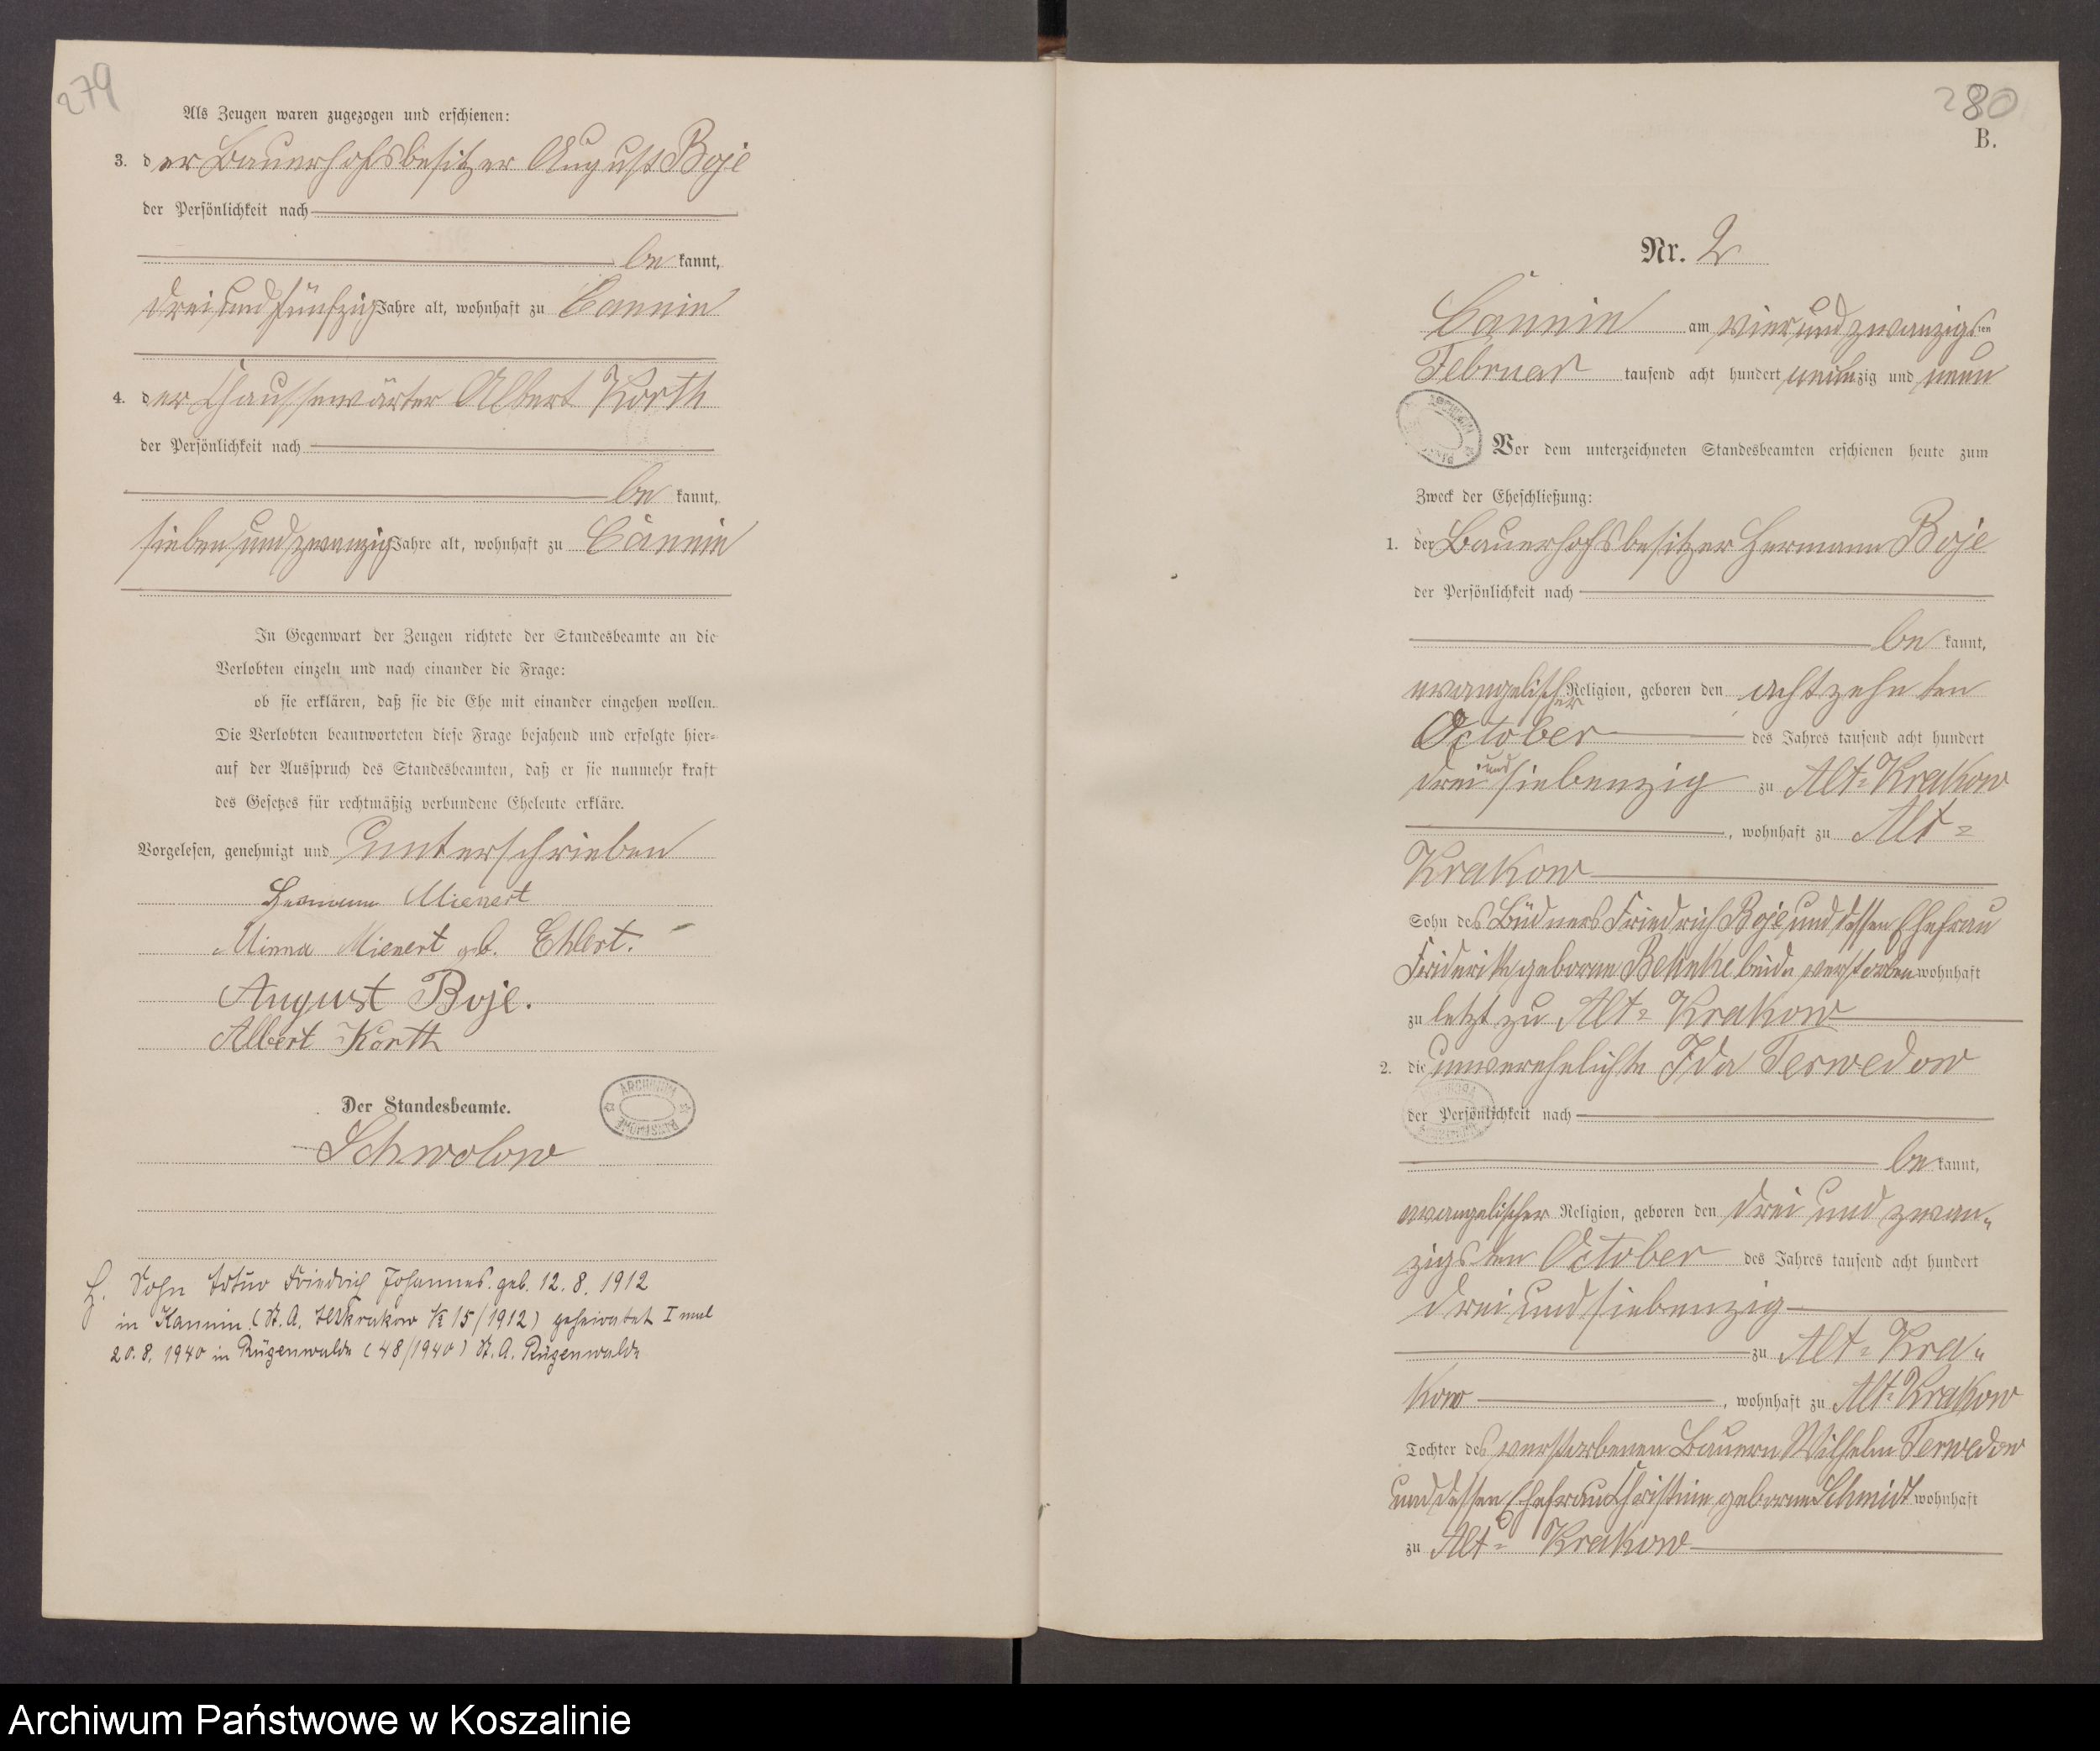 279
Als Zeugen waren zugezogen und erschienen:
3. der Bauerhofsbesitzer August Boje
der Persönlichkeit nach
be kannt,
drei und fünfzig Jahre alt, wohnhaft zu Cannin
4. der Chausseewärter Albert Korth
der Persönlichkeit nach
be kannt,
sieben und zwanzig Jahre alt, wohnhaft zu Cannin
In Gegenwart der Zeugen richtete der Standesbeamte an die
Verlobten einzeln und nach einander die Frage:
ob sie erklären, daß sie die Ehe mit einander eingehen wollen.
Die Verlobten beantworteten diese Frage bejahend und erfolgte hier-
auf der Ausspruch des Standesbeamten, daß er sie nunmehr kraft
des Gesetzes für rechtmäßig verbundene Eheleute erkläre.
Vorgelesen, genehmigt und unterschrieben
Hermann Mienert
Minna Mienert geb. Ehlert.
August Boje.
Albert Korth
Der Standesbeamte.
ARCHIWUM PAŃSTWOWE
Schwolow
H. Sohn Artur Friedrich Johannes. geb. 12. 8. 1912
in Kannin (St. A. Altkrakow № 15/1912) geheiratet I mal
20. 8. 1940 in Rügenwalde (48/1940) St. A. Rügenwalde
280
B.
Nr. 2
Cannin am vier und zwanzigsten
Februar tausend acht hundert neunzig und neun
Vor dem unterzeichneten Standesbeamten erschienen heute zum
Zweck der Eheschließung:
1. der Bauerhofsbesitzer Hermann Boje
der Persönlichkeit nach
be kannt,
evangelischer Religion, geboren den achtzehnten
October des Jahres tausend acht hundert
drei und siebenzig zu Alt-Krakow
, wohnhaft zu Alt-
Krakow
Sohn des Büdners Friedrich Boje und dessen Ehefrau
Friderike geborne Behnke beide verstorben wohnhaft
zu letzt zu Alt-Krakow
2. die unverehelichte Ida Terwedow
der Persönlichkeit nach
be kannt,
evangelischer Religion, geboren den drei und zwan-
zigsten October des Jahres tausend acht hundert
drei und siebenzig
zu Alt-Kra-
kow , wohnhaft zu Alt-Krakow
Tochter des verstorbenen Bauern Wilhelm Terwedow
und dessen Ehefrau Christine geborne Schmidt wohnhaft
zu Alt-Krakow
Archiwum Państwowe w Koszalinie